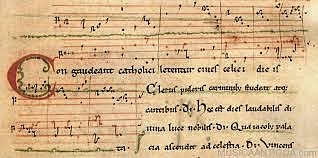 Congaudeant catholici letentur ciues celici die is
Clerus pulcris carminibus studeat atque
cantibus. Di. Hec est dies laudabilis di
uina luce nobilis. Di. Qua iacobus pala
cia ascendit ad celestia. Di. Vincens